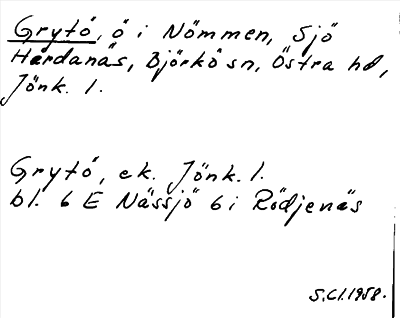 Grytö, ö i Nömmen, Sjö
Hårdanäs, Björkö sn, Östra hd,
Jönk. l.
Grytö, ek. Jönk. l.
bl. 6 E Nässjö 6 i Rödjenäs
S.Cl.1958.